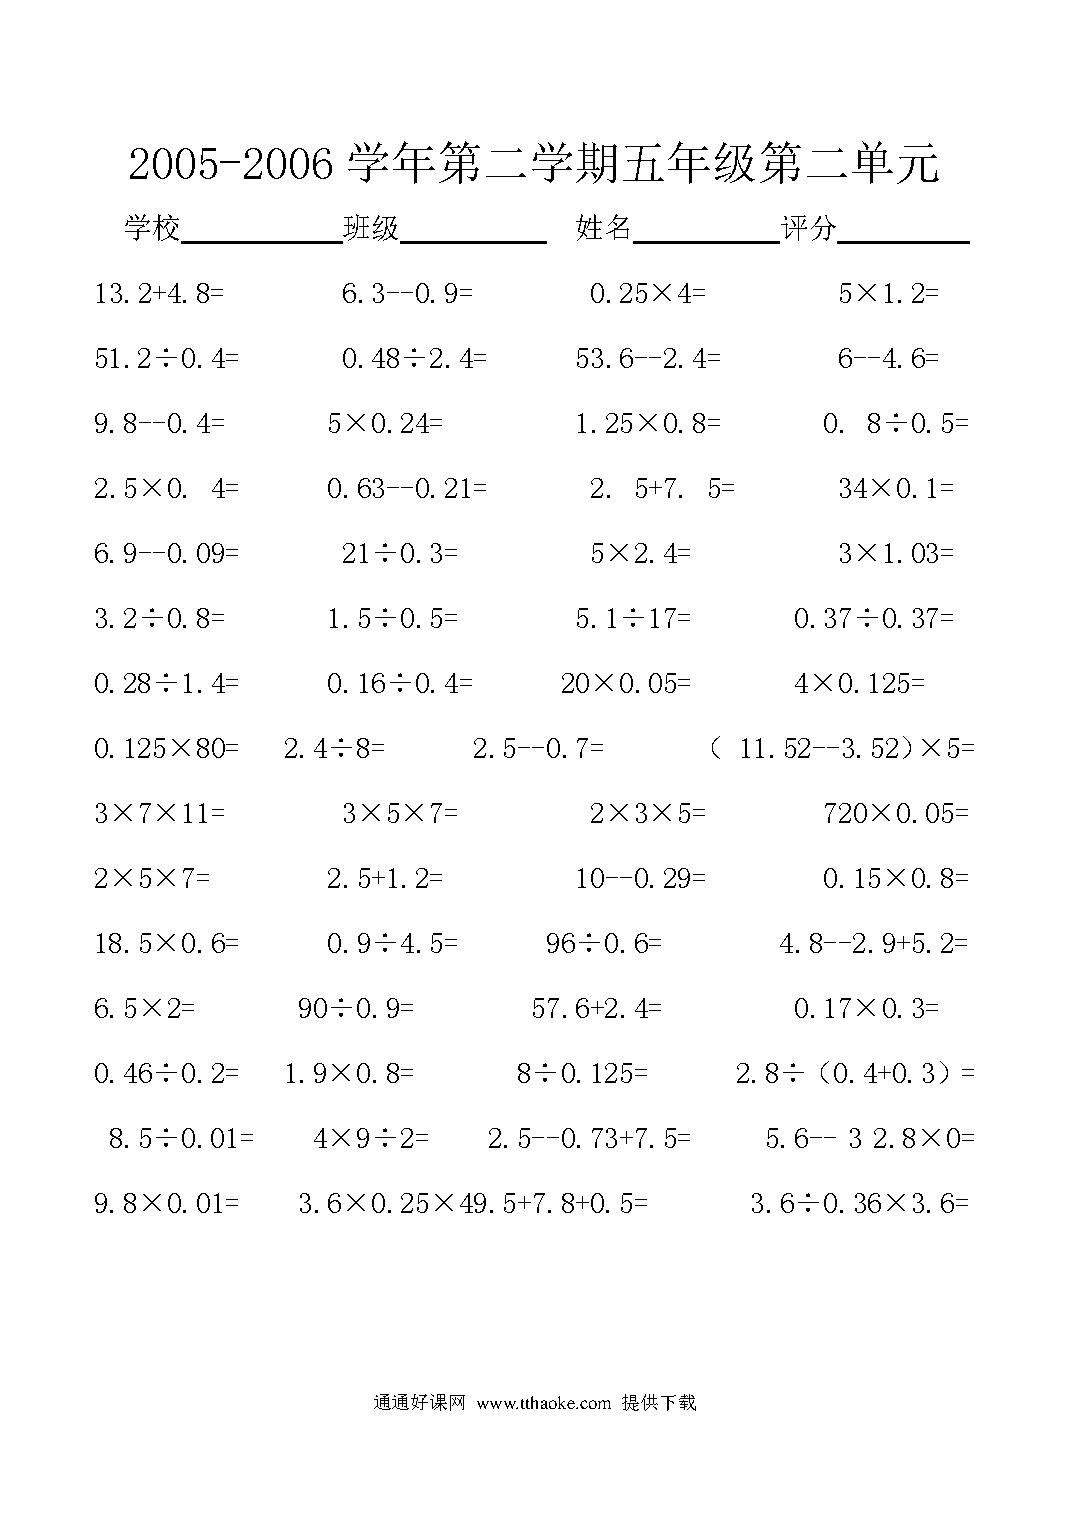 2005-2006 学年第二学期五年级第二单元
学校 班级 姓名 评分
13.2+4.8= 6.3--0.9= 0.25×4= 5×1.2=
51.2÷0.4= 0.48÷2.4= 53.6--2.4= 6--4.6=
9.8--0.4= 5×0.24= 1.25×0.8= 0. 8÷0.5=
2.5×0. 4= 0.63--0.21= 2. 5+7. 5= 34×0.1=
6.9--0.09= 21÷0.3= 5×2.4= 3×1.03=
3.2÷0.8= 1.5÷0.5= 5.1÷17= 0.37÷0.37=
0.28÷1.4= 0.16÷0.4= 20×0.05= 4×0.125=
0.125×80= 2.4÷8= 2.5--0.7= （ 11.52--3.52）×5=
3×7×11= 3×5×7= 2×3×5= 720×0.05=
2×5×7= 2.5+1.2= 10--0.29= 0.15×0.8=
18.5×0.6= 0.9÷4.5= 96÷0.6= 4.8--2.9+5.2=
6.5×2= 90÷0.9= 57.6+2.4= 0.17×0.3=
0.46÷0.2= 1.9×0.8= 8÷0.125= 2.8÷（0.4+0.3）=
8.5÷0.01= 4×9÷2= 2.5--0.73+7.5= 5.6-- 3 2.8×0=
9.8×0.01= 3.6×0.25×49.5+7.8+0.5= 3.6÷0.36×3.6=
通通好课网 www.tthaoke.com 提供下载